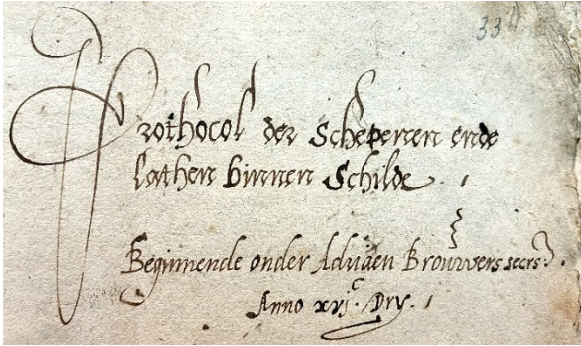 334
Prothocol der Schepenen ende
Lathen binnen Schilde.
Beginnende onder Adriaen Brouwers secrs.
Anno xvjc. Dry.